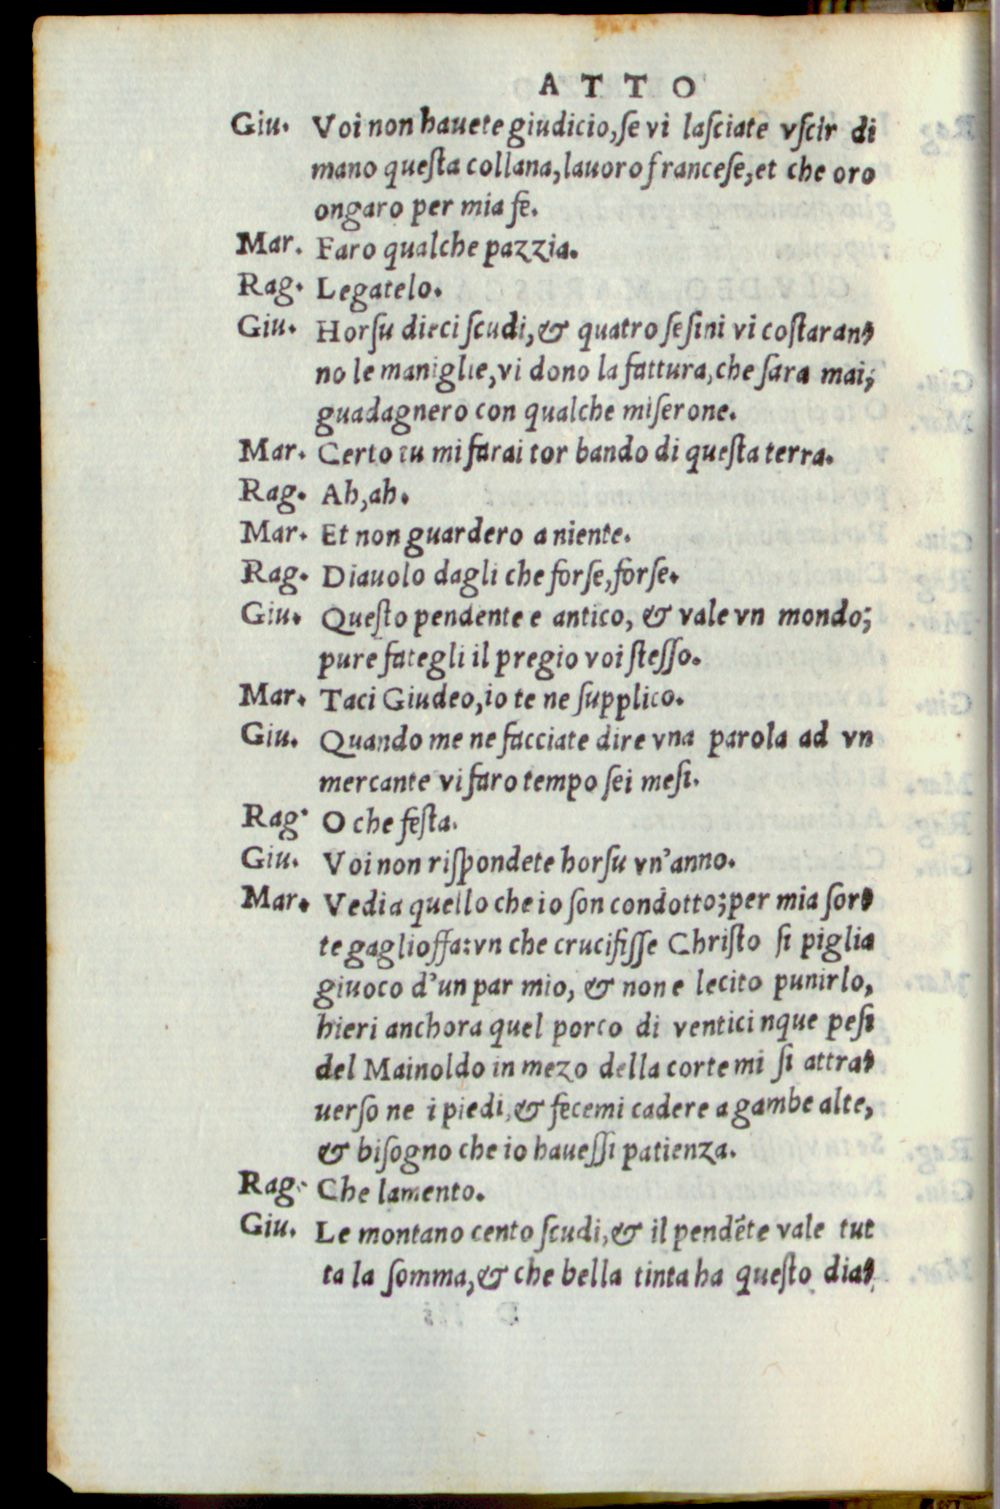 ATTO
Giu. Voi non hauete giudicio, ſe vi laſciate vſcir di
mano queſta collana, lauoro franceſe, et che oro
ongaro per mia fe.
Mar. Faro qualche pazzia.
Rag. Legatelo.
Giu. Horſu dieci ſcudi, & quatro ſeſini vi coſtaran-
no le maniglie, vi dono la fattura, che ſara mai;
guadagnero con qualche miſerone.
Mar. Certo tu mi farai tor bando di queſta terra.
Rag. Ah, ah.
Mar. Et non guardero a niente.
Rag. Diauolo dagli che forſe, forſe.
Giu. Queſto pendente e antico, & vale vn mondo;
pure fategli il pregio voi ſteſſo.
Mar. Taci Giudeo, io te ne ſupplico.
Giu. Quando me ne facciate dire vna parola ad vn
mercante vi faro tempo ſei meſi.
Rag. O che feſta.
Giu. Voi non riſpondete horſu vn'anno.
Mar. Vedi a quello che io ſon condotto; per mia ſor-
te gaglioffa: vn che crucifiſſe Chriſto ſi piglia
giuoco d'un par mio, & non e lecito punirlo,
hieri anchora quel porco di venticinque peſi
del Mainoldo in mezo della corte mi ſi attra-
uerſo ne i piedi, & fecemi cadere a gambe alte,
& biſogno che io haueſſi patienza.
Rag. Che lamento.
Giu. Le montano cento ſcudi, & il pendẽte vale tut
ta la ſomma, & che bella tinta ha queſto dia-